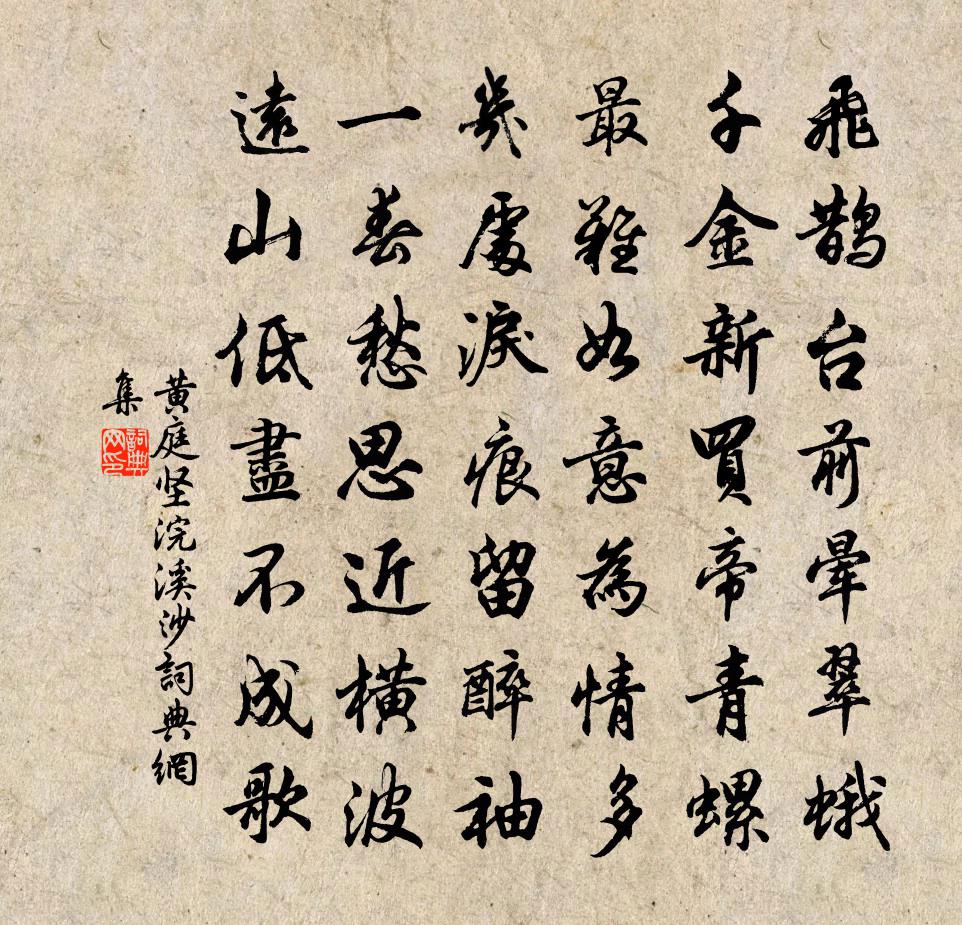 飛鵲台前暈翠蛾
千金新買帝青螺
最難如意為情多
幾處淚痕留醉袖
一春愁思近橫波
遠山低盡不成歌
黄庭坚浣溪沙詞典網
集
詞典網印